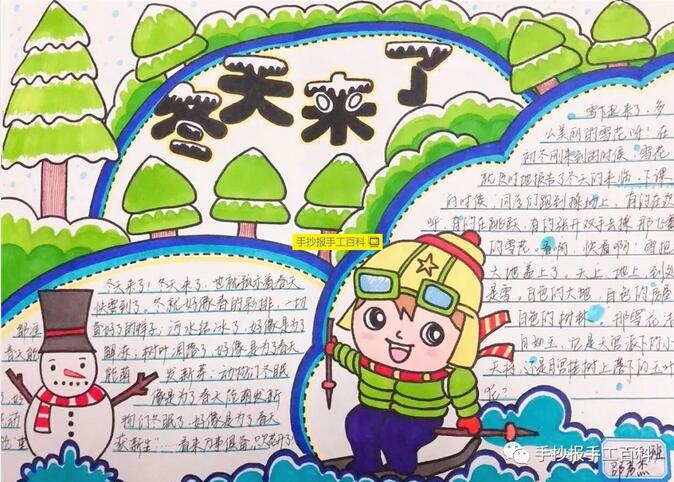 冬天来了
手抄报手工百科
雪下起来了,多
么美丽的雪花呀!在
初冬刚来到的时候,雪花
就及时地报告了冬天的来临。下课
的时候,同学们跑到操场上,有的在欢
呼,有的在跳跃,有的张开双手去接那飞舞
的雪花。看啊,快看啊!雪把
大地盖上了,天上、地上,到处
是雪,白色的大地,白色的房屋
白色的树林,那雪花洁
白如玉,它是天宫派下的小
天将,还是月宫桂树上落下的玉叶
呢?
冬天来了!冬天来了,也就预示着春天
快要到了。冬就好像春的彩排,一切
都准 备好了的样子;河水结冰了,好像是为了
春天能 解冻;树叶凋零了,好像是为了春天
能萌 发新芽;动物们冬眠
好像是为了春天的萌发新
动 物们冬眠了,好像是为了春天
的重 获新生……看来万事俱备,只欠
手抄报手工百科
班